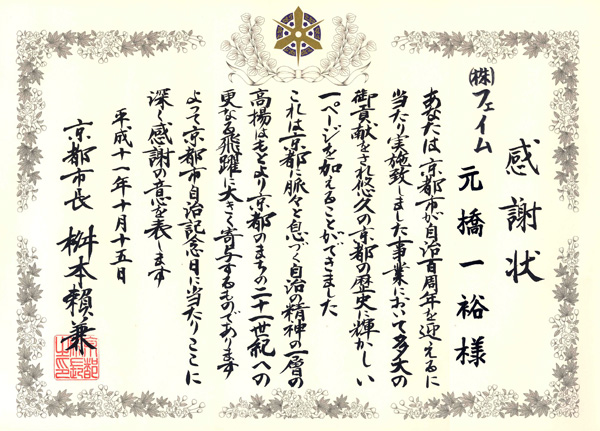 感謝状
㈱フェイム
元橋一裕様
あなたは京都市が自治百周年を迎えるに
当たり実施致しました事業において多大の
御貢献をされ悠久の京都の歴史に輝かしい
一ページを加えることができました
これは京都に脈々と息づく自治の精神の一層の
高揚はもとより京都のまちの二十一世紀への
更なる飛躍に大きく寄与するものであります
よって京都市自治記念日に当たりここに
深く感謝の意を表します
平成十一年十月十五日
京都市長 桝本頼兼